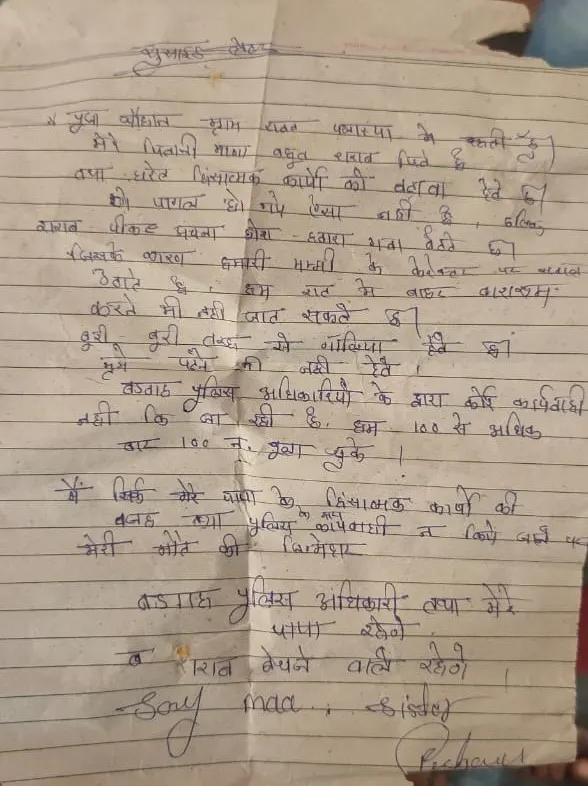 सुसाइड नोट
पुजा चौहान ग्राम में रहती हूँ।
मेरे पिताजी बहुत शराब पिते है
तथा घरेलु हिंसात्मक कार्यो को बढावा देते है।
की पागल हो गये ऐसा नहीं है,
शराब पीकर अपना गवा बैठते है।
जिसके कारण हमारी मम्मी के केरेक्टर पर सवाल
उठाते है। हम रात में बाहर
करने भी नही जात सकते है।
बुरी बुरी तरह से गालिया देते है।
मुझे पढने भी नही देते।
पुलिस अधिकारियो के द्वारा कोई कार्यवाही
नही कि जा रही है. हम 100 से अधिक
बार 100 न. बुला चुके ।
मैं सिर्फ मेरे पापा के हिंसात्मक कार्यो की
वजह तथा पुलिस के कार्यवाही न किये जाने पर
मेरी मौत की जिमेदार
पुलिस अधिकारी तथा मेरे
पापा रहेगे
व शराब बेचने वाले रहेगे ।
Sory maa.. Sister